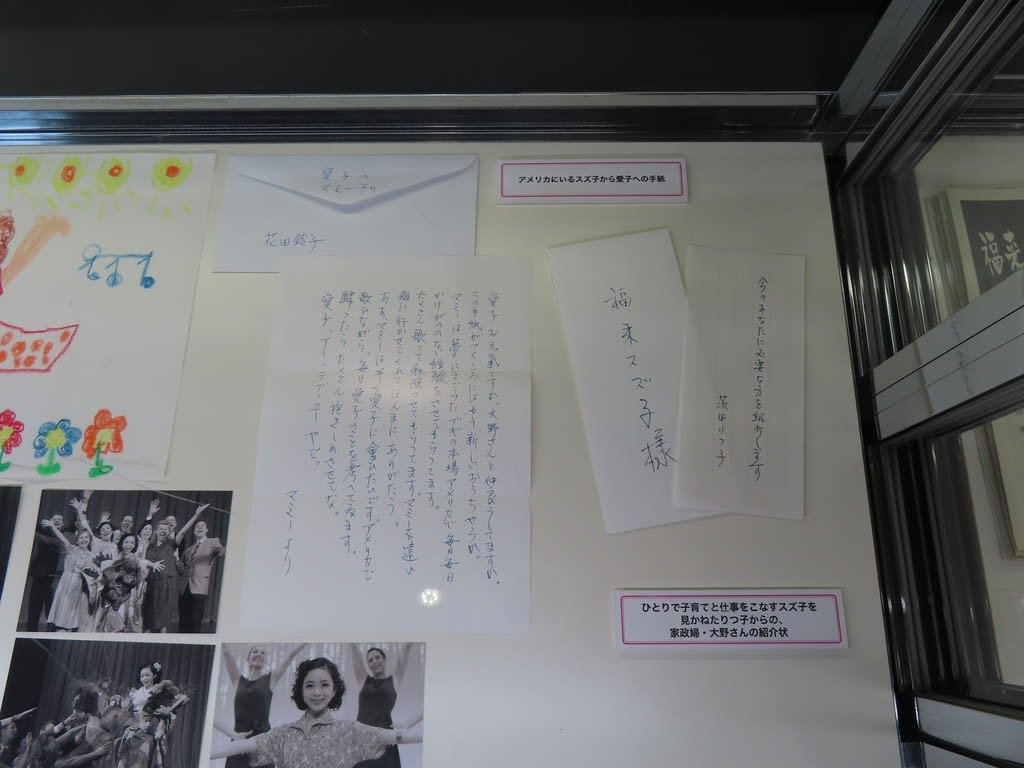 愛子へ
マミーより
花田鈴子
アメリカにいるスズ子から愛子への手紙
愛子 お元気ですか。大野さんと仲良うしてますか。
この手紙がつくころにはもう新しいおうちやろか。
マミーは夢にまでみたブギの本場アメリカで毎日毎日
かけがへのない経験をさせてもらってます。
たくさん歌って勉強させてもらってます。マミーを遠い
国に行かせてくれてほんまにありがたう。
ああ、マミーは早う愛子に會ひたいです。アメリカで
歌ひながら毎日愛子のことを考へてゐます。
歸ったらたくさん抱きしめさせてな。
愛子、アイ・ラブ・ユーやで。
マミーより
福来スズ子様
今のあなたに必要な方を紹介します
茨田りつ子
ひとりで子育てと仕事をこなすスズ子を
見かねたりつ子からの、
家政婦・大野さんの紹介状
福来